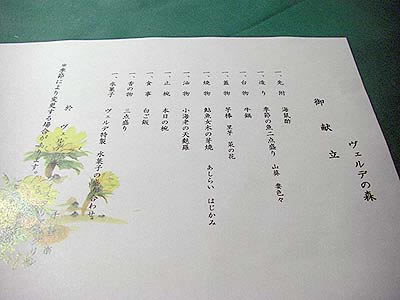 ヴェルデの森
御献立
一、先附 海鼠酢
一、造り 季節の魚二点盛り 山葵 妻色々
一、台物 牛鍋
一、蓋物 芋棒 里芋 菜の花
一、焼物 鮎魚女木の芽焼 あしらい はじかみ
一、油物 小海老の天麩羅
一、止椀 本日の椀
一、食事 白ご飯
一、香の物 三点盛り
一、水菓子 ヴェルデ特製 水菓子の盛り合わせ
於 ヴェルデ
※季節により変更する場合があります。